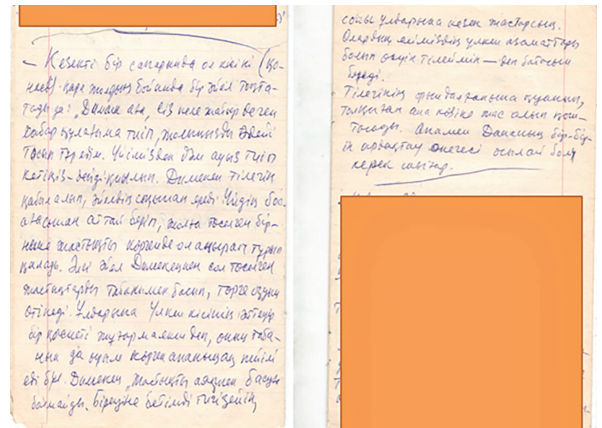 — Кезекті бір сапарында ол кісіні (Қо-
наев) қарт жолдың бойында бір әйел тоқта-
тады да: „Димаш аға, сіз келе жатыр деген
хабар құлағыма тиіп, жолыңызды әдейі
тосып тұр едім. Үйімізден дәм ауыз тиіп
кетіңіз – дейді қиылып. Димекең тілегін
қабыл алып, әйелдің соңынан ереді. Үйдің бос-
ағасынан аттай беріп, жолға төселген бір-
неше жастықты көргенде ол аңырап тұрып
қалады. Әлі әйел Димекеңнен сол төселген
жастықтарды табанымен басып, төрге озуын
өтінеді. Ұлдарына Үлкен кісінің
бір қасиеті жұғар ма екен деп, оның таба-
ны да ұйым көрген ананың ақ пейілі
еді бұл. Димекең „Жастықты аяқпен басуға
болмайды. Біреуіне бетімді тигізейін,
соңы ұлдарыңа кезек жастарсың.
Олардың еліміздің үлкен азаматтары
болып өсуін тілеймін – деп батасын
береді.
Тілегінің орындалғанына қуанып,
толқыған ана көзіне жас алып қош-
тасады. Анамен Дананың бір-бір-
ін ардақтау өнегесі осылай болу
керек шығар.